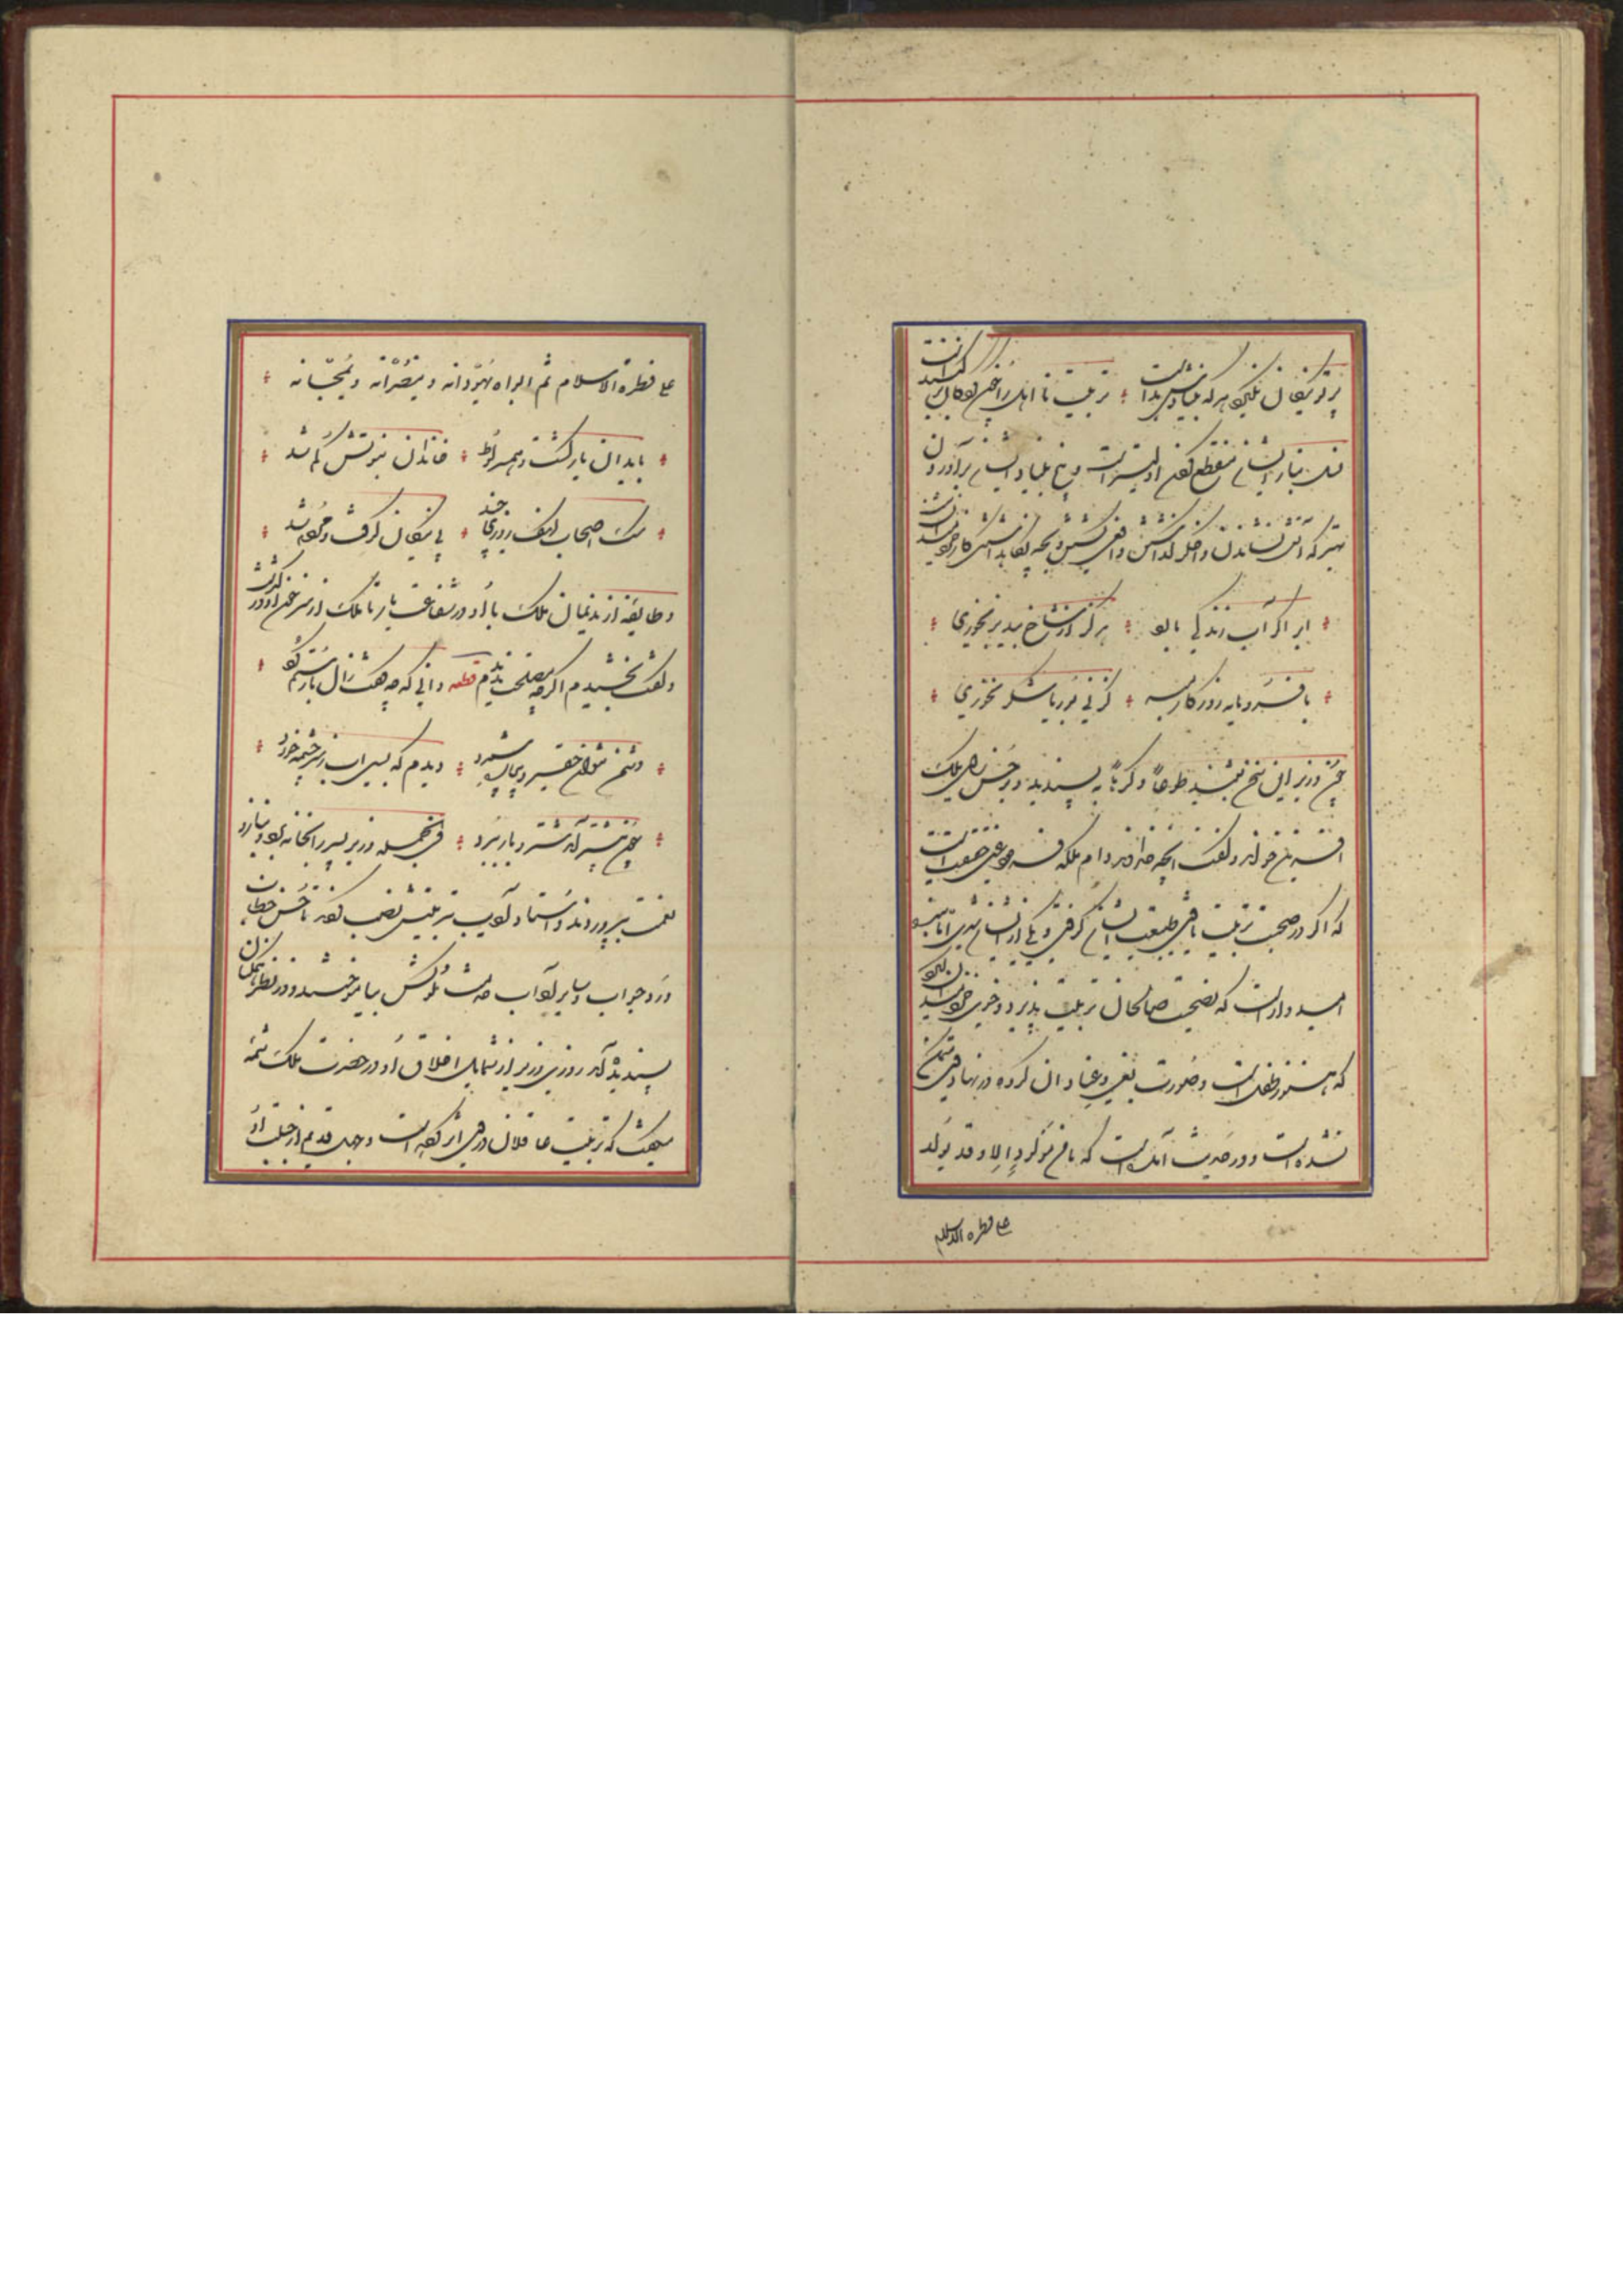 پرتو نیکان نگیرد هرکه بنیادش بداست تربیت نااهل را چون گردکان بر گنبداست
نسل بنیاد ایشان منقطع کردن اولیتر است و بیخ بنیاد ایشان برآوردن
بهتر که آتش نشاندن و اخگر گذاشتن و افعی کشتن و بچه نگاه داشتن کار خردمندان نیست
ابر اگر آب زندگی بارد هرگز از شاخ بید بر نخوری
با فرومایه روزگار مبر کز نی بوریا شکر نخوری
چون وزیر این سخن بشنید طوعاً و کرهاً بپسندید و بر حسن رای ملک
آفرین خواند و گفت آنچه خداوند دام ملکه فرمود عین حقیقت است
که اگر در صحبت تربیت یافتی طبیعت ایشان گرفتی و یکی از ایشان شدی اما بنده
امیدوار است که بصحبت صالحان تربیت پذیرد و خوی خردمندان گیرد
که هنوز طفل است و صورت بغی و عناد آن گروه در نهاد وی متمکن
نشده است و در حدیث آمده است که ما من مولود الا و قد یولد
علی فطرة الاسلام
علی فطرة الاسلام ثم ابواه یهودانه و ینصرانه و یمجسانه
با بدان یار گشت همسر لوط خاندان نبوتش گم شد
سک اصحاب کهف روزی چند پی نیکان گرفت و مردم شد
و طایفه از ندمان ملک با او در شفاعت یار تا ملک از سر خون او در گذشت
و گفت بخشیدم اگرچه مصلحت ندیدم قطعه دانی که چه گفت زال با رستم گرد
دشمن نتوان حقیر و بیچاره شمرد دیدم که بسی آب ز سرچشمه خرد
چون بیشتر آمد شتر و بار ببرد فی الجمله وزیر پسر را بخانه برد و بناز و
نعمت بپروردند و استاد و ادیب بتربیتش نصب کردند تا حسن خطاب
و رد جواب و سایر آداب خدمت ملوکش بیاموختند و در نظر همکنان
پسندیده آمد روزی وزیر از شمایل اخلاق او در حضرت ملک شمه
میگفت که تربیت عاقلان در وی اثر کرده است و جهل قدیم از جبلت او